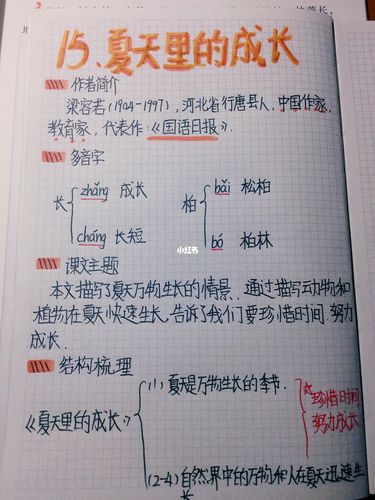 15、夏天里的成长
作者简介
梁容若(1904-1997),河北省行唐县人,中国作家,
教育家,代表作:《国语日报》.
多音字
长 zhǎng 成长
cháng 长短
柏 bǎi 松柏
bó 柏林
小红书
课文主题
本文描写了夏天万物生长的情景.通过描写动物和
植物在夏天快速生长,告诉了我们要珍惜时间.努力
成长.
结构梳理
《夏天里的成长》
(1)夏天是万物生长的季节.
(2-4)自然界中的万物和人在夏天迅速生
长
珍惜时间
努力成长